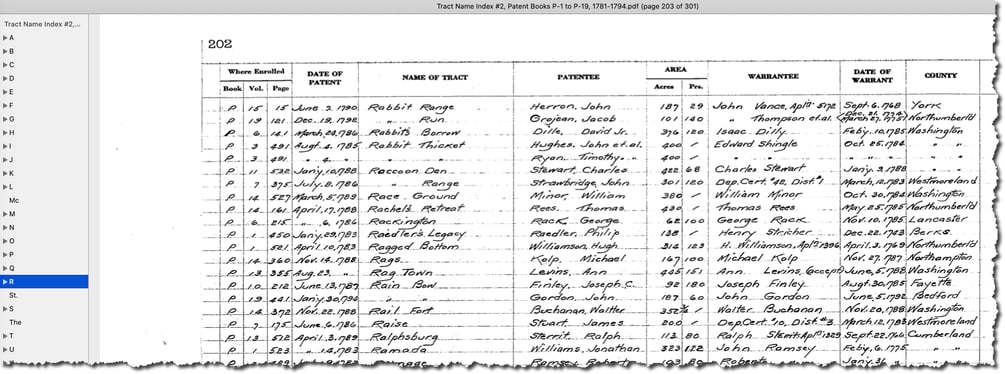 Tract Name Index #2, Patent Books P-1 to P-19, 1781-1794.pdf (page 203 of 301)
Tract Name Index #2,...
A
B
C
D
E
F
G
H
I
J
K
L
Mc
M
N
O
P
Q
R
St.
S
The
T
U
202
Where Enrolled DATE OF PATENT NAME OF TRACT PATENTEE AREA WARRANTEE DATE OF WARRANT COUNTY
Book Vol. Page Acres Prs.
P 15 15 June 2, 1790 Rabbit Range Herron, John 187 29 John Vance, Apln 5172 Sept. 6, 1768 York
P 19 121 Dec. 19, 1792 " Run Grojean, Jacob 101 140 " Thompson et.al. Northumberld
P 6 141 March, 20, 1786 Rabbit's Borrow Dille, David Jr. 376 120 Isaac Dilly Feby. 10, 1785 Washington
P 3 491 Augt. 4, 1785 Rabbit Thicket Hughes, John et.al. 400 / Edward Shingle Oct. 25, 1784 "
P 3 491 " 4 " " " Ryan, Timothy " 400 / " " " " "
P 11 532 Jany, 10, 1788 Raccoon Den Stewart, Charles 422 68 Charles Stewart Jany. 3, 1788 "
P 7 375 July, 8, 1786 " Range Strawbridge, John 301 120 Dep. Cert. #42, Dist. #1 March, 12, 1783 Westmoreland
P 14 527 March, 5, 1789 Race Ground Minor, William 380 / William Minor Oct. 30, 1784 Washington
P 14 161 April, 17, 1788 Rachel's Retreat Rees, Thomas 430 / Thomas Rees May. 25, 1785 Northumberld
P 6 215 " 6, 1786 Rackington Rack, George 62 100 George Rack Nov. 10, 1785 Lancaster
P 1 450 Jany. 29, 1783 Raedler's Legacy Raedler, Philip 138 / Henry Stricher Dec. 22, 1743 Berks
P 1 521 April, 10, 1783 Ragged Bottom Williamson, Hugh 314 123 H. Williamson, Apln 1396 April, 3, 1769 Northumberld
P 14 360 Nov. 14, 1788 Rags Kolp, Michael 167 100 Michael Kolp Nov. 27, 1787 Northampton
P 13 355 Aug. 23, " Rag Town Levins, Ann 445 151 Ann Levins, (accept) June, 5, 1788 Washington
P 10 212 June, 13, 1787 Rain Bow Finley, Joseph C. 92 180 Joseph Finley Augt. 30, 1785 Fayette
P 19 441 Jany. 30, 1794 " " Gordon, John 187 60 John Gordon June, 5, 1792 Bedford
P 14 372 Nov. 22, 1788 Rail Fort Buchanan, Walter 352¾ / Walter Buchanan Nov. 20, 1788 Washington
P 7 175 June, 6, 1786 Raise Stuart, James 200 / Dep. Cert. #10, Dist. #3 March, 12, 1783 Westmoreland
P 13 512 April, 3, 1789 Ralphsburg Sterrit, Ralph 113 80 Ralph Sterrit Apln 1329 Sept. 22, 1766 Cumberland
P 1 523 " 14, 1783 Ramada Williams, Jonathan 323 122 John Ramsey Feby, 6, 1775 "